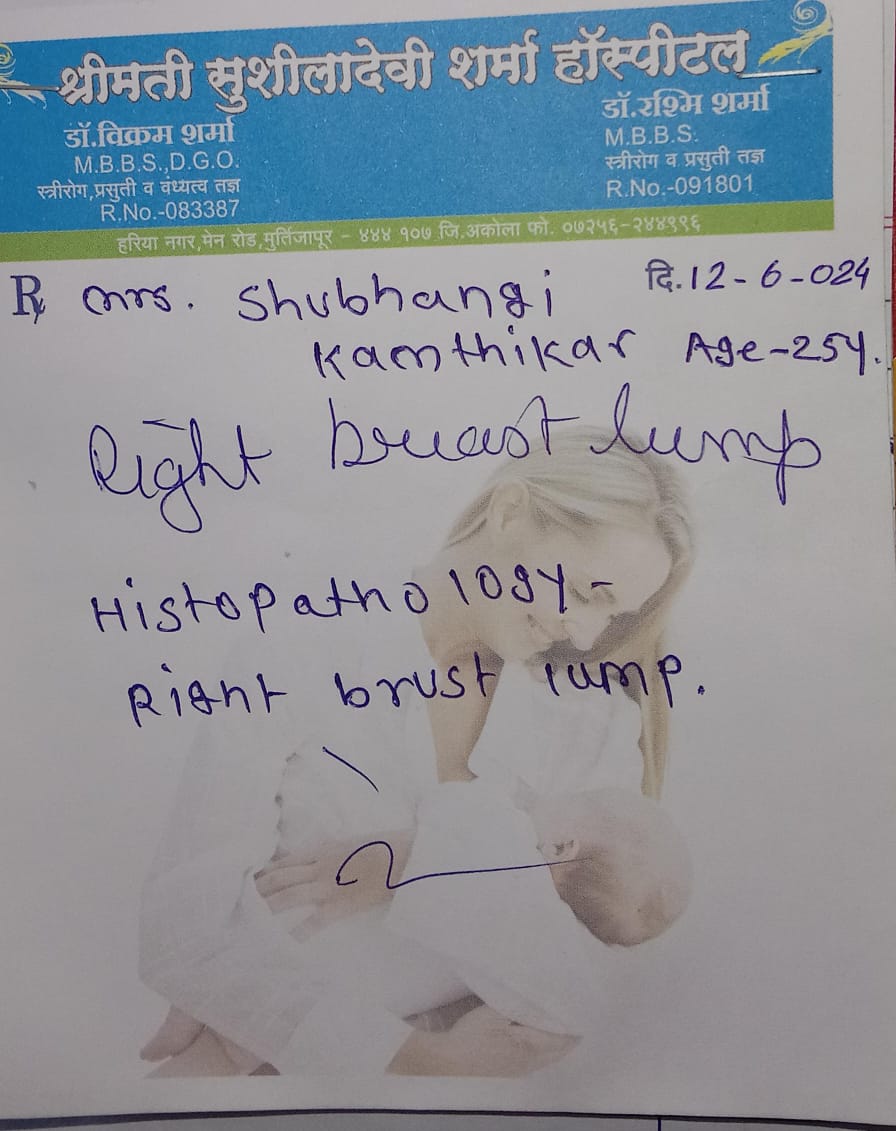 श्रीमती सुशीलादेवी शर्मा हॉस्पीटल
डॉ.विक्रम शर्मा
M.B.B.S.,D.G.O.
स्त्रीरोग,प्रसुती व वंध्यत्व तज्ञ
R.No.-083387
डॉ.रश्मि शर्मा
M.B.B.S.
स्त्रीरोग व प्रसुती तज्ञ
R.No.-091801
हरिया नगर,मेन रोड,मुर्तिजापूर - ४४४ १०७ जि.अकोला फो. ०७२५६-२४४९९६
℞ Mrs. Shubhangi दि.12-6-024
Kamthikar Age-25Y.
Right breast lump
Histopathology-
Right brust lump.